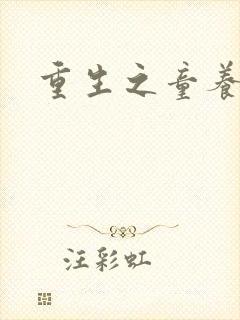 重生之童养
汪彩虹